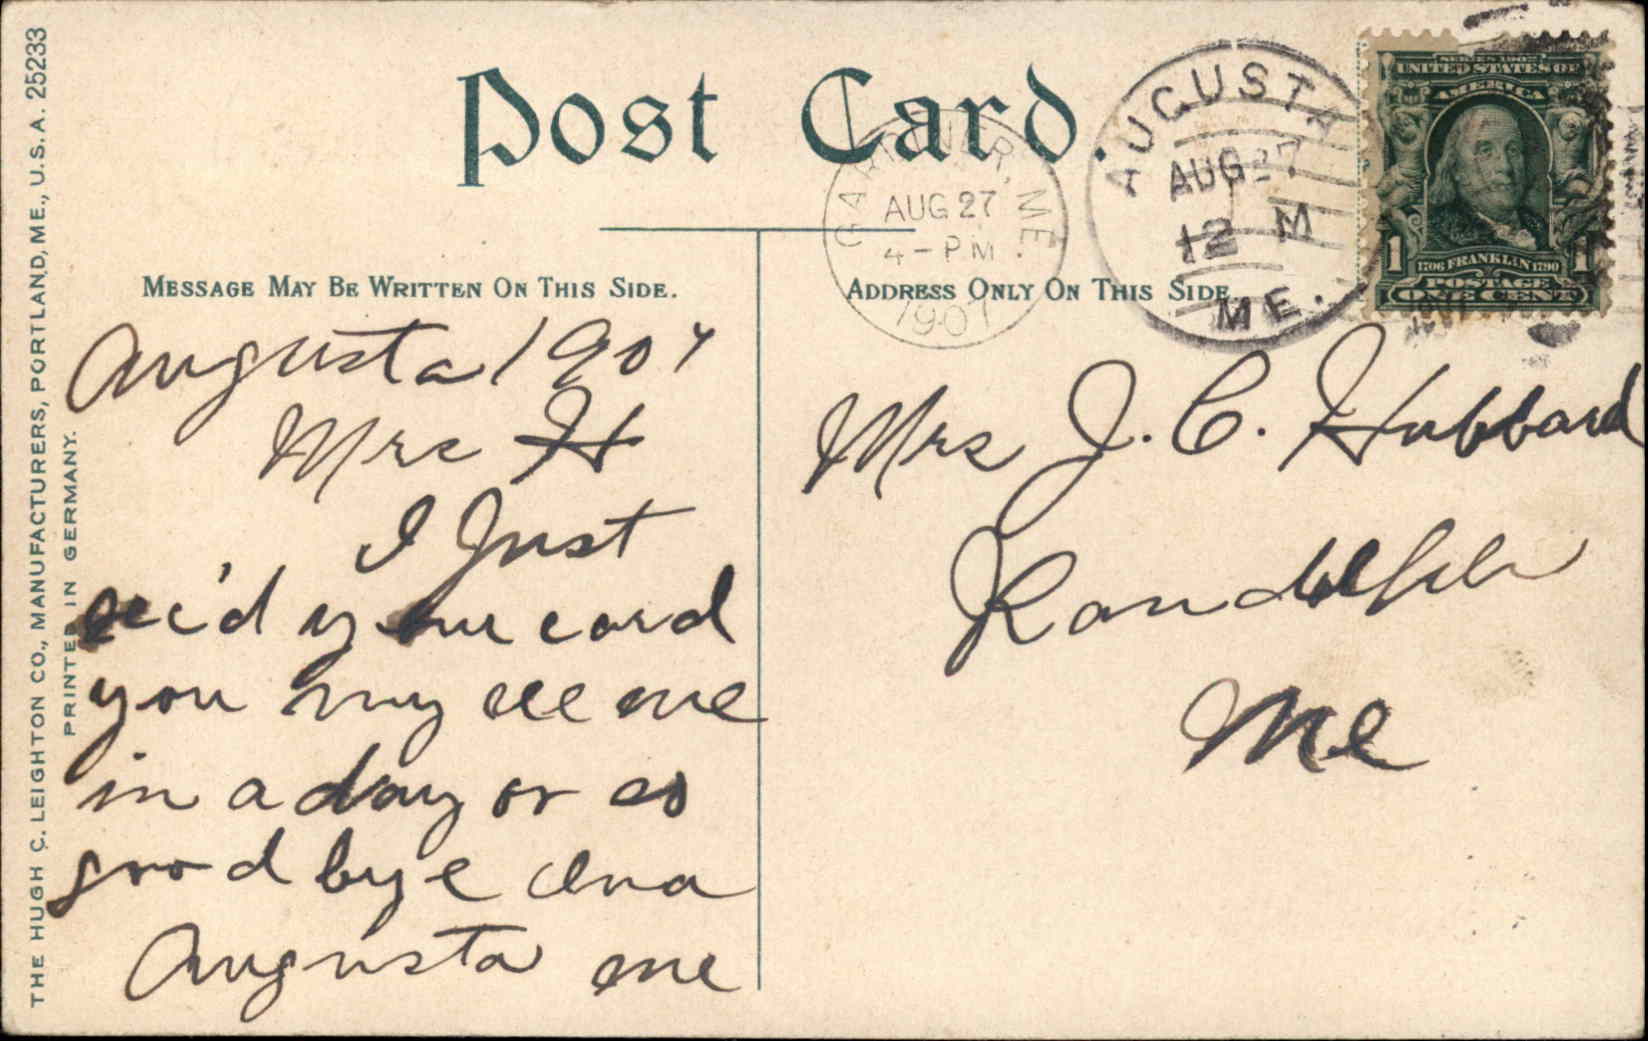 THE HUGH C. LEIGHTON CO., MANUFACTURERS, PORTLAND, ME., U.S.A. 25233
PRINTED IN GERMANY.
Post Card.
GARDINER, ME.
AUG 27
4-PM
1907
AUGUSTA
AUG 27
12 M
ME.
SERIES 1902
UNITED STATES OF
AMERICA
1 1
1706 FRANKLIN 1790
POSTAGE
ONE CENT
MESSAGE MAY BE WRITTEN ON THIS SIDE.
Augusta 1907
Mrs H
I Just
rec'd your card
you my see me
in a day or so
good bye
Augusta me
ADDRESS ONLY ON THIS SIDE.
Mrs J. C. Hubbard
Randolph
Me